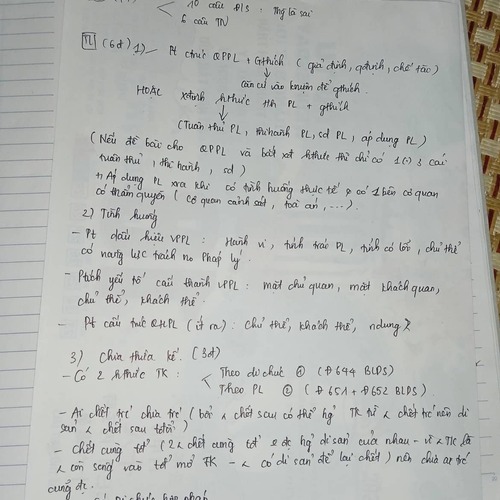 10 câu Đ/S : Thg là sai
6 câu TN
TL (6đ) 1) Pt ctruc QPPL + Gthích ( giả định, qđịnh, chế tài)
căn cứ vào khuyên để gthích
HOẶC xđịnh hthức th PL + gthích
(Tuân thủ PL, thi hành PL, sd PL, áp dụng PL)
( Nếu đề bài cho QPPL và bắt xđ hthức thì chỉ có 1 3 cái
tuân thủ, thi hành, sd )
Áp dụng PL xra khi có tình huống thực tế & có 1 bên có quan
có thẩm quyền ( Cơ quan cảnh sát, toà án, ....).
2) Tình huống
- Pt dấu hiệu VPPL : Hành vi, tính trái PL, tính có lỗi, chủ thể
có năng lực trách no Pháp lý.
- Ptích yếu tố cấu thành VPPL : mặt chủ quan, mặt khách quan,
chủ thể, khách thể.
- Pt cấu trúc QHPL (ít ra) : Chủ thể, khách thể, ndung
3) Chia thừa kế. (3đ)
- Có 2 hthức TK : Theo di chúc ① (Đ644 BLDS)
Theo PL ② (Đ651 + Đ652 BLDS)
- Ai chết trc chia trc ( bởi chết sau có thể hg TK từ chết trc nên di
sản chết sau )
- Chết cùng tđ ( 2 chết cùng tđ k đc hg di sản của nhau - vì TK là
còn sống vào tđ mở TK - có di sản để lại chết ) nên chia ai trc
cũng đc.